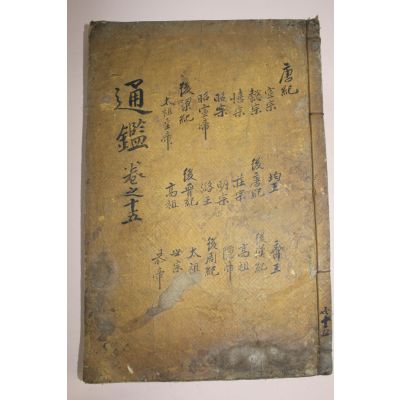 通鑑 卷之十五
唐紀
宣宗
懿宗
僖宗
昭宗
昭宣帝
後梁紀
太祖皇帝
均王
後唐紀
莊宗
明宗
潞王
後晉紀
高祖
齊王
後漢紀
高祖
隱帝
後周紀
太祖
世宗
恭帝